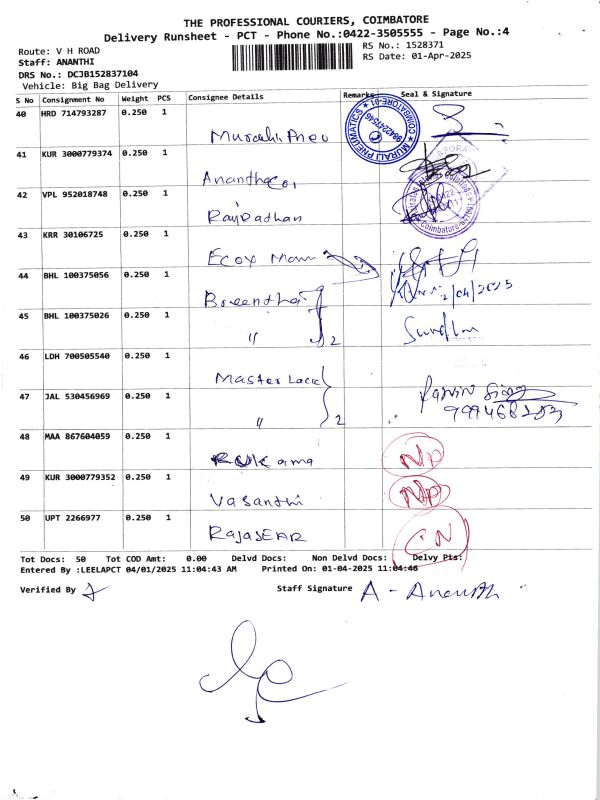 THE PROFESSIONAL COURIERS, COIMBATORE
Delivery Runsheet - PCT - Phone No.:0422-3505555 - Page No.:4
Route: V H ROAD
RS No.: 1528371
Staff: ANANTHI
RS Date: 01-Apr-2025
DRS No.: DCJB152837104
Vehicle: Big Bag Delivery
S No Consignment No Weight PCS Consignee Details Remarks Seal & Signature
40 HRD 714793287 0.250 1
Murali Pneu
MURALI PNEUMATICS COIMBATORE-01 9842247546
41 KUR 3000779374 0.250 1
42 VPL 952018748 0.250 1
43 KRR 30106725 0.250 1
44 BHL 100375056 0.250 1
2/04/2025
45 BHL 100375026 0.250 1
" 2
46 LDH 700505540 0.250 1
Master Lock
47 JAL 530456969 0.250 1
" 2
48 MAA 867604059 0.250 1
NP
49 KUR 3000779352 0.250 1
Vasanthi NP
50 UPT 2266977 0.250 1
CN
Tot Docs: 50 Tot COD Amt: 0.00 Delvd Docs: Non Delvd Docs: Delvy Pts:
Entered By :LEELAPCT 04/01/2025 11:04:43 AM Printed On: 01-04-2025 11:04:46
Verified By Staff Signature A - Ananthi